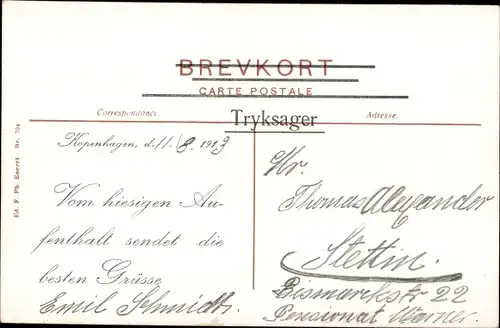 BREVKORT
CARTE POSTALE
Correspondance. Adresse.
Tryksager
Kopenhagen, d. 11./8. 1913
Vom hiesigen Au-
fenthalt sendet die
besten Grüsse
Emil Schmidt.
Hr.
Thomas Alexander
Stettin.
Bismarkstr 22
Pensionat Werner.
Ed. F. Ph. Eneret Nr. 704